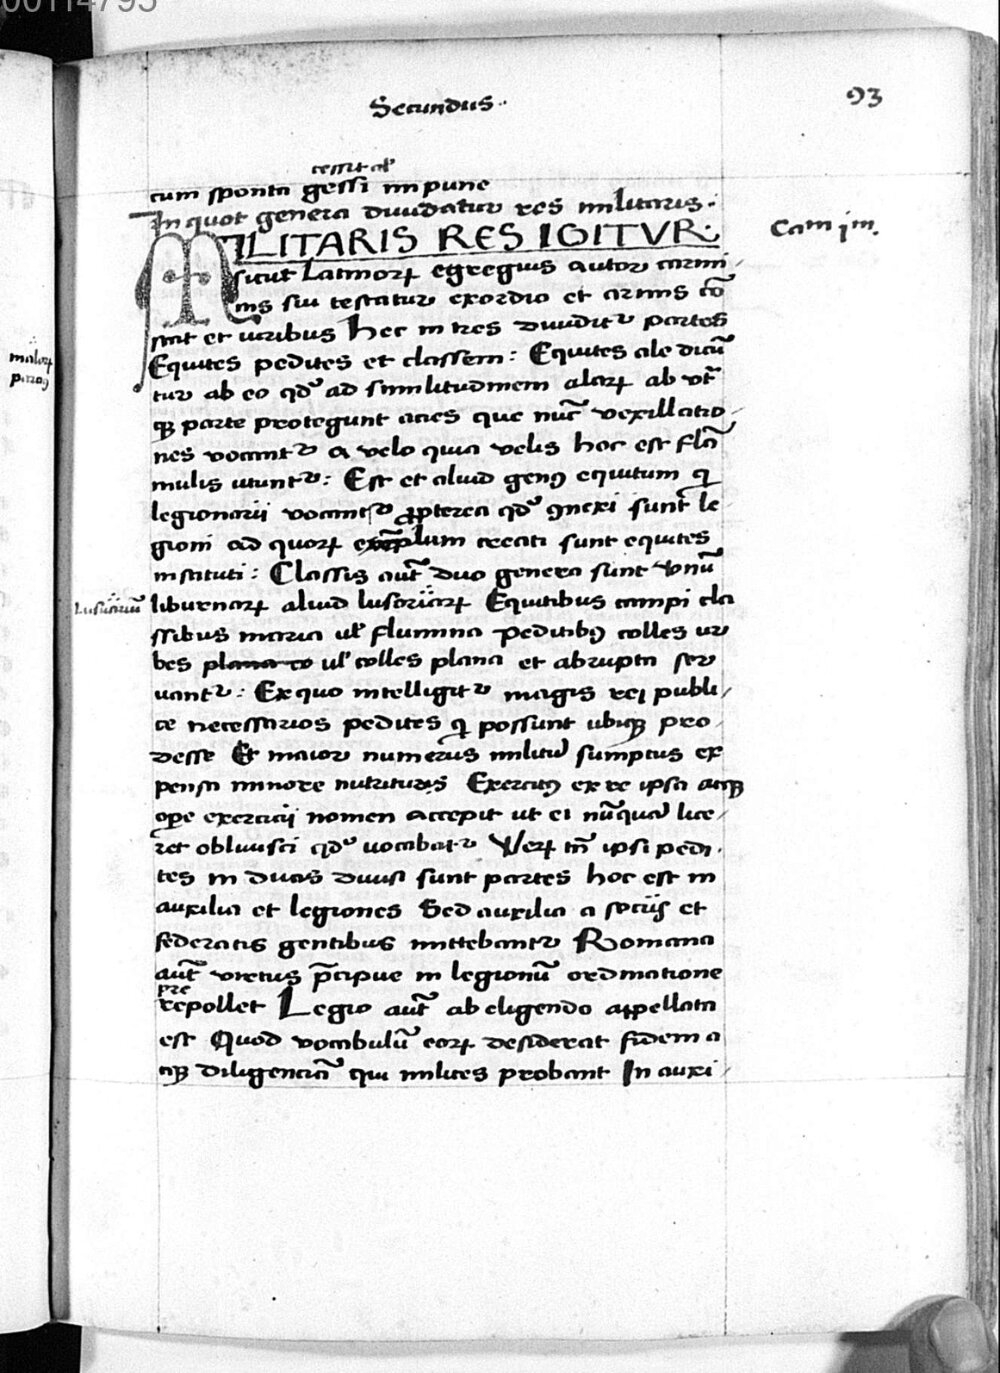 00114795
Secundus
93
cessit al'
cum sponta gessi impune
In quot genera diuidatur res militaris.
MILITARIS RES IGITVR.
Cam jm.
sicut Latinorꝝ egregius autor carmi
nis sui testatur exordio et armis cō
stat et uiribus Hec in tres diuidit᷑ partes
Equites pedites et classem: Equites ale dicū
tur ab eo qd' ad similitudinem alarꝝ ab vtr̄
qꝫ parte protegunt acies que nūc vexillatio
nes vocant᷑ a velo quia velis hoc est flā
mulis utunt᷑: Est et aliud genꝰ equitum qͥ
legionarii vocant᷑ ꝓpterea qd' ꝯnexi sunt le
gioni ad quorꝝ exēplum creati sunt equites
instituti: Classis aūt duo genera sunt vnū
liburnarꝝ aliud lusoriarꝝ Equitibus campi cla
Lusuariū
ssibus maria ul' flumina peditibꝰ colles ur
bes plana co ul' colles plana et abrupta ser
uant᷑: Ex quo intelligit᷑ magis rei publi
ce necessarios pedites qͥ possunt ubiqꝫ pro
desse Et maior numerus militū sumptus ex
pensa minore nutrituris Exercitꝰ ex re ipsa atqꝫ
oꝑe exercitii nomen accepit ut ei nūquā lice
ret obliuisci qd' uocabat᷑ Verꝝ tn̄ ipsi pedi
tes in duas diuisi sunt partes hoc est in
auxilia et legiones Sed auxilia a sociis et
federatis gentibus mittebant᷑ Romana
aūt virtus p̄cipue in legionū ordinatione
pre
repollet Legio aūt ab eligendo appellata
est Quod vocabulū eorꝝ desiderat fidem a
tqꝫ diligenciā qui milites probant In auxi